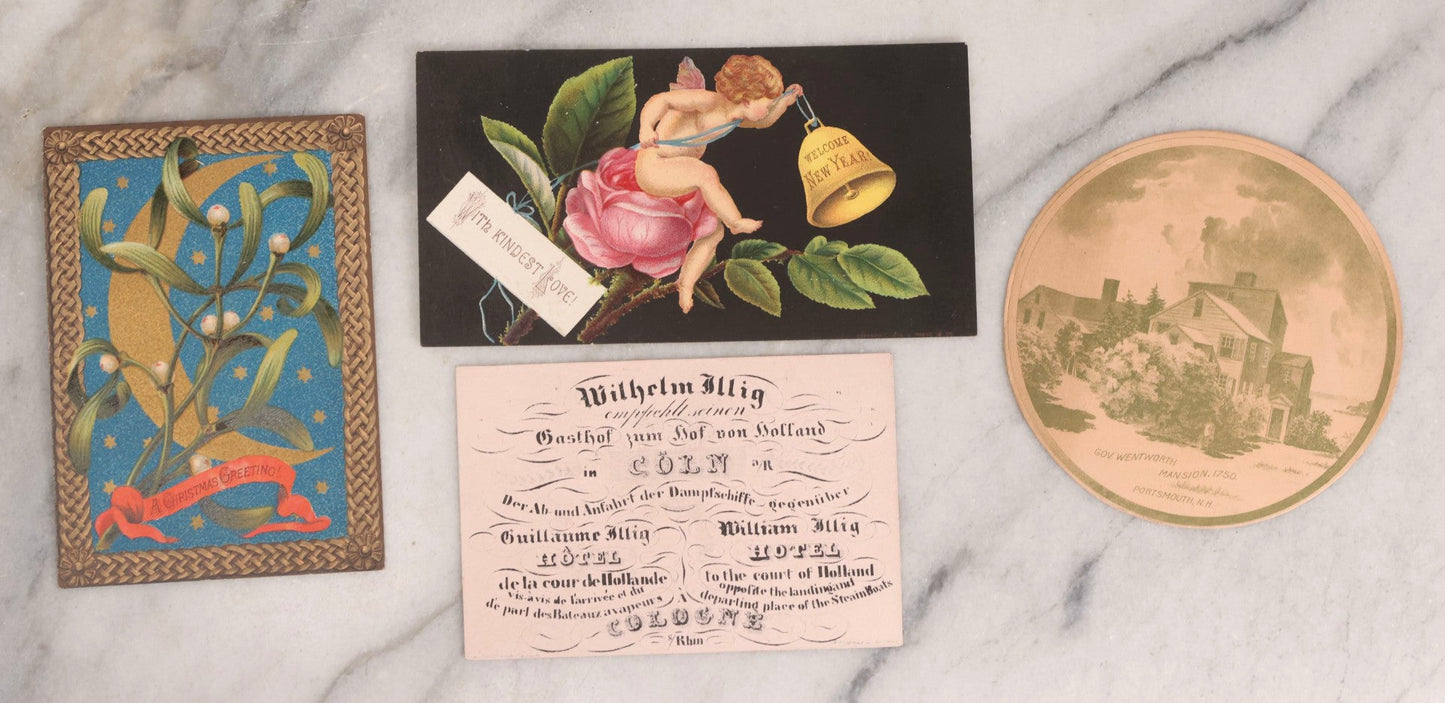 A CHRISTMAS GREETING!
WITH KINDEST LOVE!
WELCOME
NEW YEAR!
Wilhelm Illig
empfiehlt seinen
Gasthof zum Hof von Holland
in CÖLN a/R
Der Ab-und Anfahrt der Dampfschiffe gegenüber
Guillaume Illig
HÔTEL
de la cour de Hollande
vis-àvis de l'arrivée et du
de part des Bateaux a vapeurs
William Illig
HOTEL
to the court of Holland
opposite the landing and
departing place of the Steam Boats
A
COLOGNE
s/Rhin
GOV. WENTWORTH
MANSION, 1750.
PORTSMOUTH, N.H.